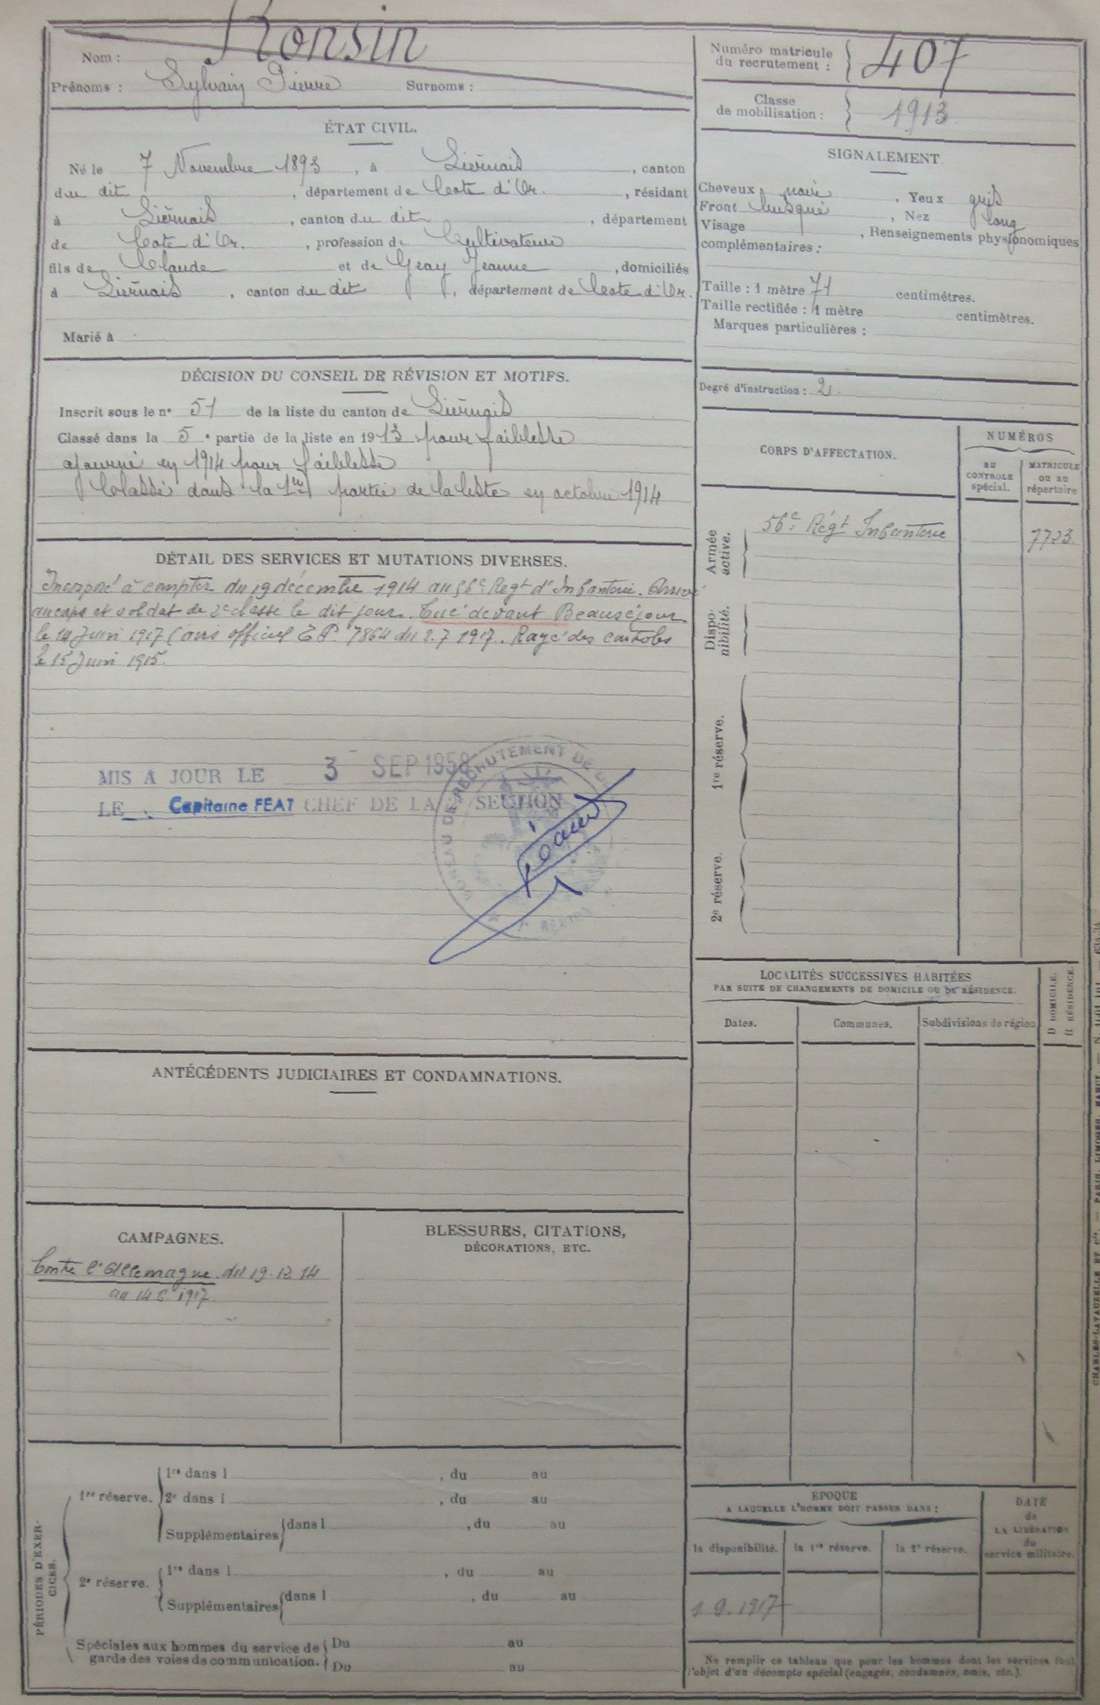 Nom : Ronsin
Prénoms : Sylvain Pierre Surnoms :
ÉTAT CIVIL.
Né le 7 Novembre 1893, à Liernais, canton
du dit, département de Cote d'Or, résidant
à Liernais, canton du dit, département
de Cote d'Or, profession de Cultivateur
fils de Claude et de Gray Jeanne, domiciliés
à Liernais, canton du dit, département de Cote d'Or.
Marié à
DÉCISION DU CONSEIL DE RÉVISION ET MOTIFS.
Inscrit sous le n° 51 de la liste du canton de Liernais
Classé dans la 5e partie de la liste en 1913 pour faiblesse
ajourné en 1914 pour faiblesse
Classé dans la 1re partie de la liste en octobre 1914
DÉTAIL DES SERVICES ET MUTATIONS DIVERSES.
Incorporé à compter du 19 décembre 1914 au 56e Regt d'Infanterie. Arrivé
au corps et soldat de 2e classe le dit jour. Tué devant Beauséjour
le 14 Juin 1917 (avis officiel E P 7864 du 2.7.1917. Rayé des contrôles
le 15 Juin 1915.
MIS A JOUR LE 3 SEP 1958
LE Capitaine FEAT CHEF DE LA SECTION
BUREAU DE RECRUTEMENT DE
ANTÉCÉDENTS JUDICIAIRES ET CONDAMNATIONS.
CAMPAGNES.
Contre l'Allemagne du 19.12.14
au 14 6 1917
BLESSURES, CITATIONS,
DÉCORATIONS, ETC.
PÉRIODES D'EXER-
CICES.
1re réserve.
1re dans l , du au
2e dans l , du au
Supplémentaires dans l , du au
2e réserve.
1re dans l , du au
Supplémentaires dans l , du au
Spéciales aux hommes du service de
garde des voies de communication.
Du au
Du au
Numéro matricule
du recrutement : 407
Classe
de mobilisation : 1913
SIGNALEMENT.
Cheveux noirs, Yeux gris
Front busqué, Nez long
Visage , Renseignements physionomiques
complémentaires :
Taille : 1 mètre 71 centimètres.
Taille rectifiée : 1 mètre centimètres.
Marques particulières :
Degré d'instruction : 2
CORPS D'AFFECTATION.
NUMÉROS
AU
CONTROLE
spécial.
MATRICULE
OU AU
répertoire
Armée
active.
56e Régt Infanterie 7723
Dispo-
nibilité.
1re réserve.
2e réserve.
LOCALITÉS SUCCESSIVES HABITÉES
PAR SUITE DE CHANGEMENTS DE DOMICILE OU DE RÉSIDENCE.
Dates. Communes. Subdivisions de région
D DOMICILE.
R RÉSIDENCE.
ÉPOQUE
A LAQUELLE L'HOMME DOIT PASSER DANS :
la disponibilité. la 1re réserve. la 2e réserve.
DATE
de
LA LIBÉRATION
du
service militaire.
1 9. 1917
Ne remplir ce tableau que pour les hommes dont les services font
l'objet d'un décompte spécial (engagés, condamnés, omis, etc.).